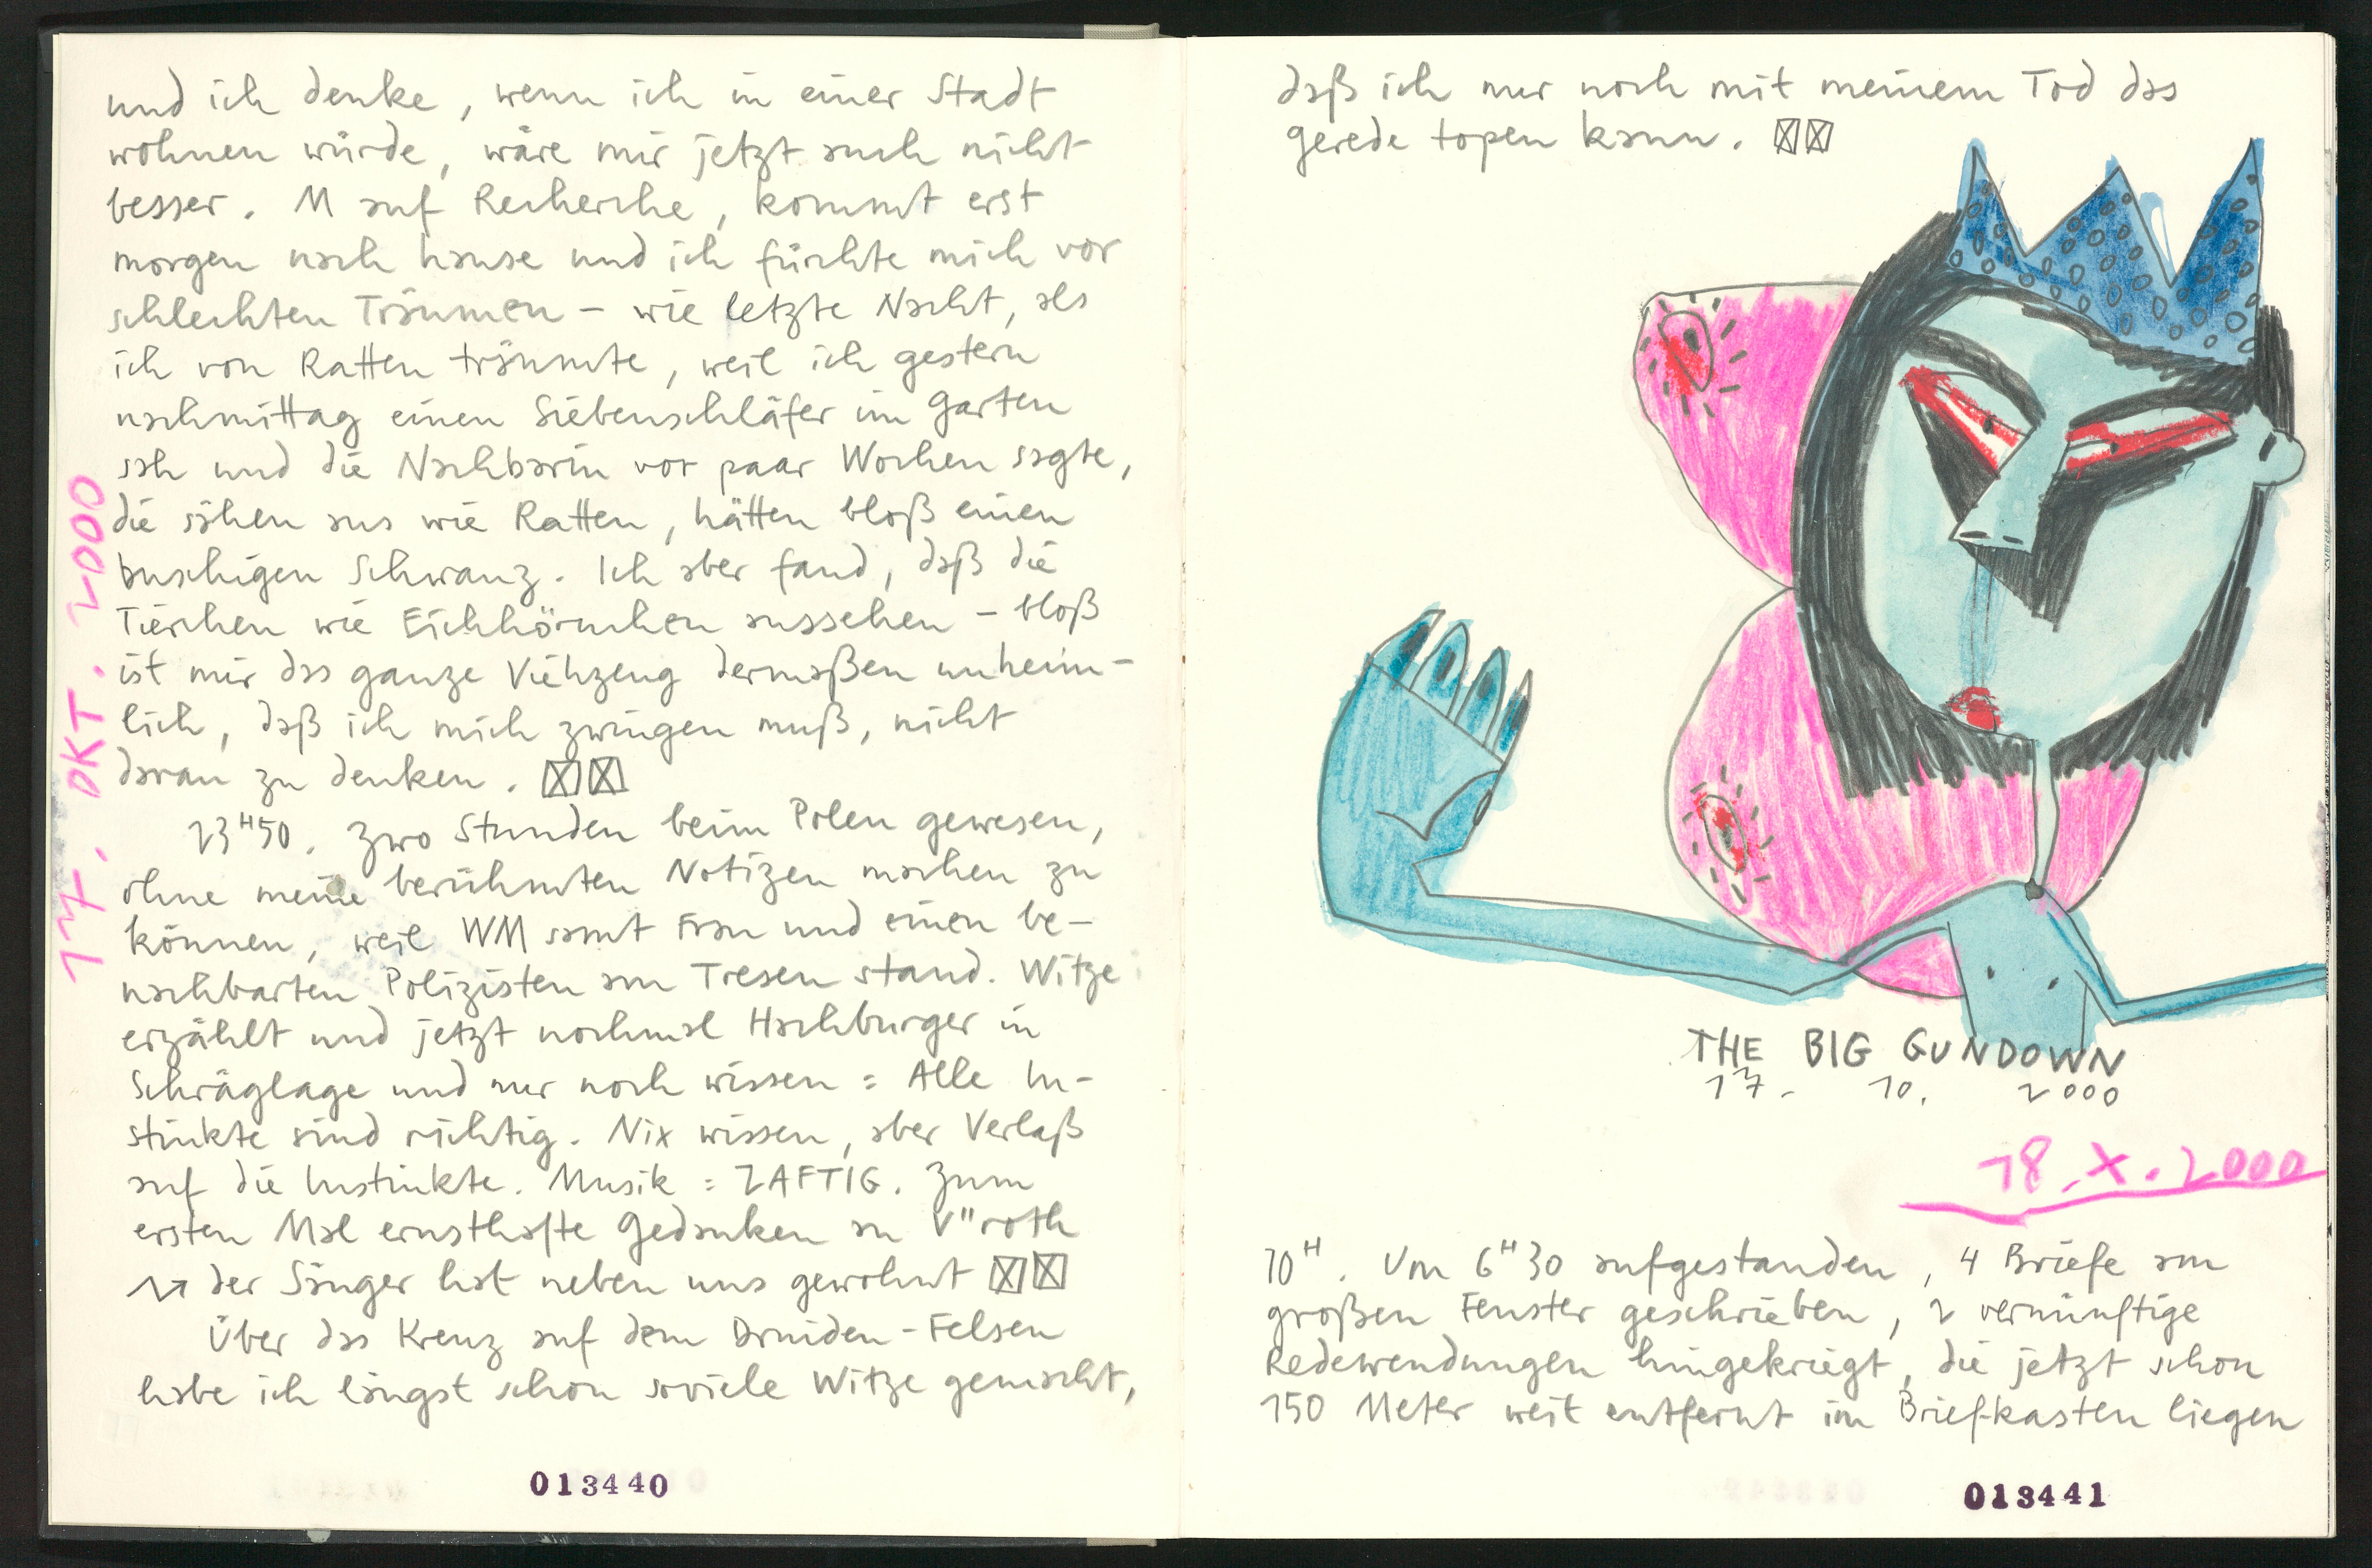 und ich denke, wenn ich in einer Stadt
wohnen würde, wäre mir jetzt auch nicht
besser. M auf Recherche, kommt erst
morgen nach hause und ich fürchte mich vor
schlechten Träumen – wie letzte Nacht, als
ich von Ratten träumte, weil ich gestern
nachmittag einen Siebenschläfer im Garten
sah und die Nachbarin vor paar Wochen sagte,
die sähen aus wie Ratten, hätten bloß einen
buschigen Schwanz. Ich aber fand, daß die
Tierchen wie Eichhörnchen aussehen – bloß
ist mir das ganze Viehzeug dermaßen unheim-
lich, daß ich mich zwingen muß, nicht
daran zu denken.
23H50. Zwo Stunden beim Polen gewesen,
ohne meine berühmten Notizen machen zu
können, weil WM samt Frau und einen be-
nachbarten Polizisten am Tresen stand. Witze
erzählt und jetzt nochmal Hachburger in
Schräglage und nur noch wissen: Alle In-
stinkte sind richtig. Nix wissen, aber Verlaß
auf die Instinkte. Musik: ZAFTIG. Zum
ersten Mal ernsthafte Gedanken an V"roth
der Sänger hat neben uns gewohnt
Über das Kreuz auf dem Druiden-Felsen
habe ich längst schon soviele Witze gemacht,
17. OKT. 2000
013440
daß ich nur noch mit meinem Tod das
gerede topen kann.
THE BIG GUNDOWN
17. 10. 2000
18. X. 2000
10H. Um 6H30 aufgestanden, 4 Briefe am
großen Fenster geschrieben, 2 vernünftige
Redewendungen hingekriegt, die jetzt schon
150 Meter weit entfernt im Briefkasten liegen
013441